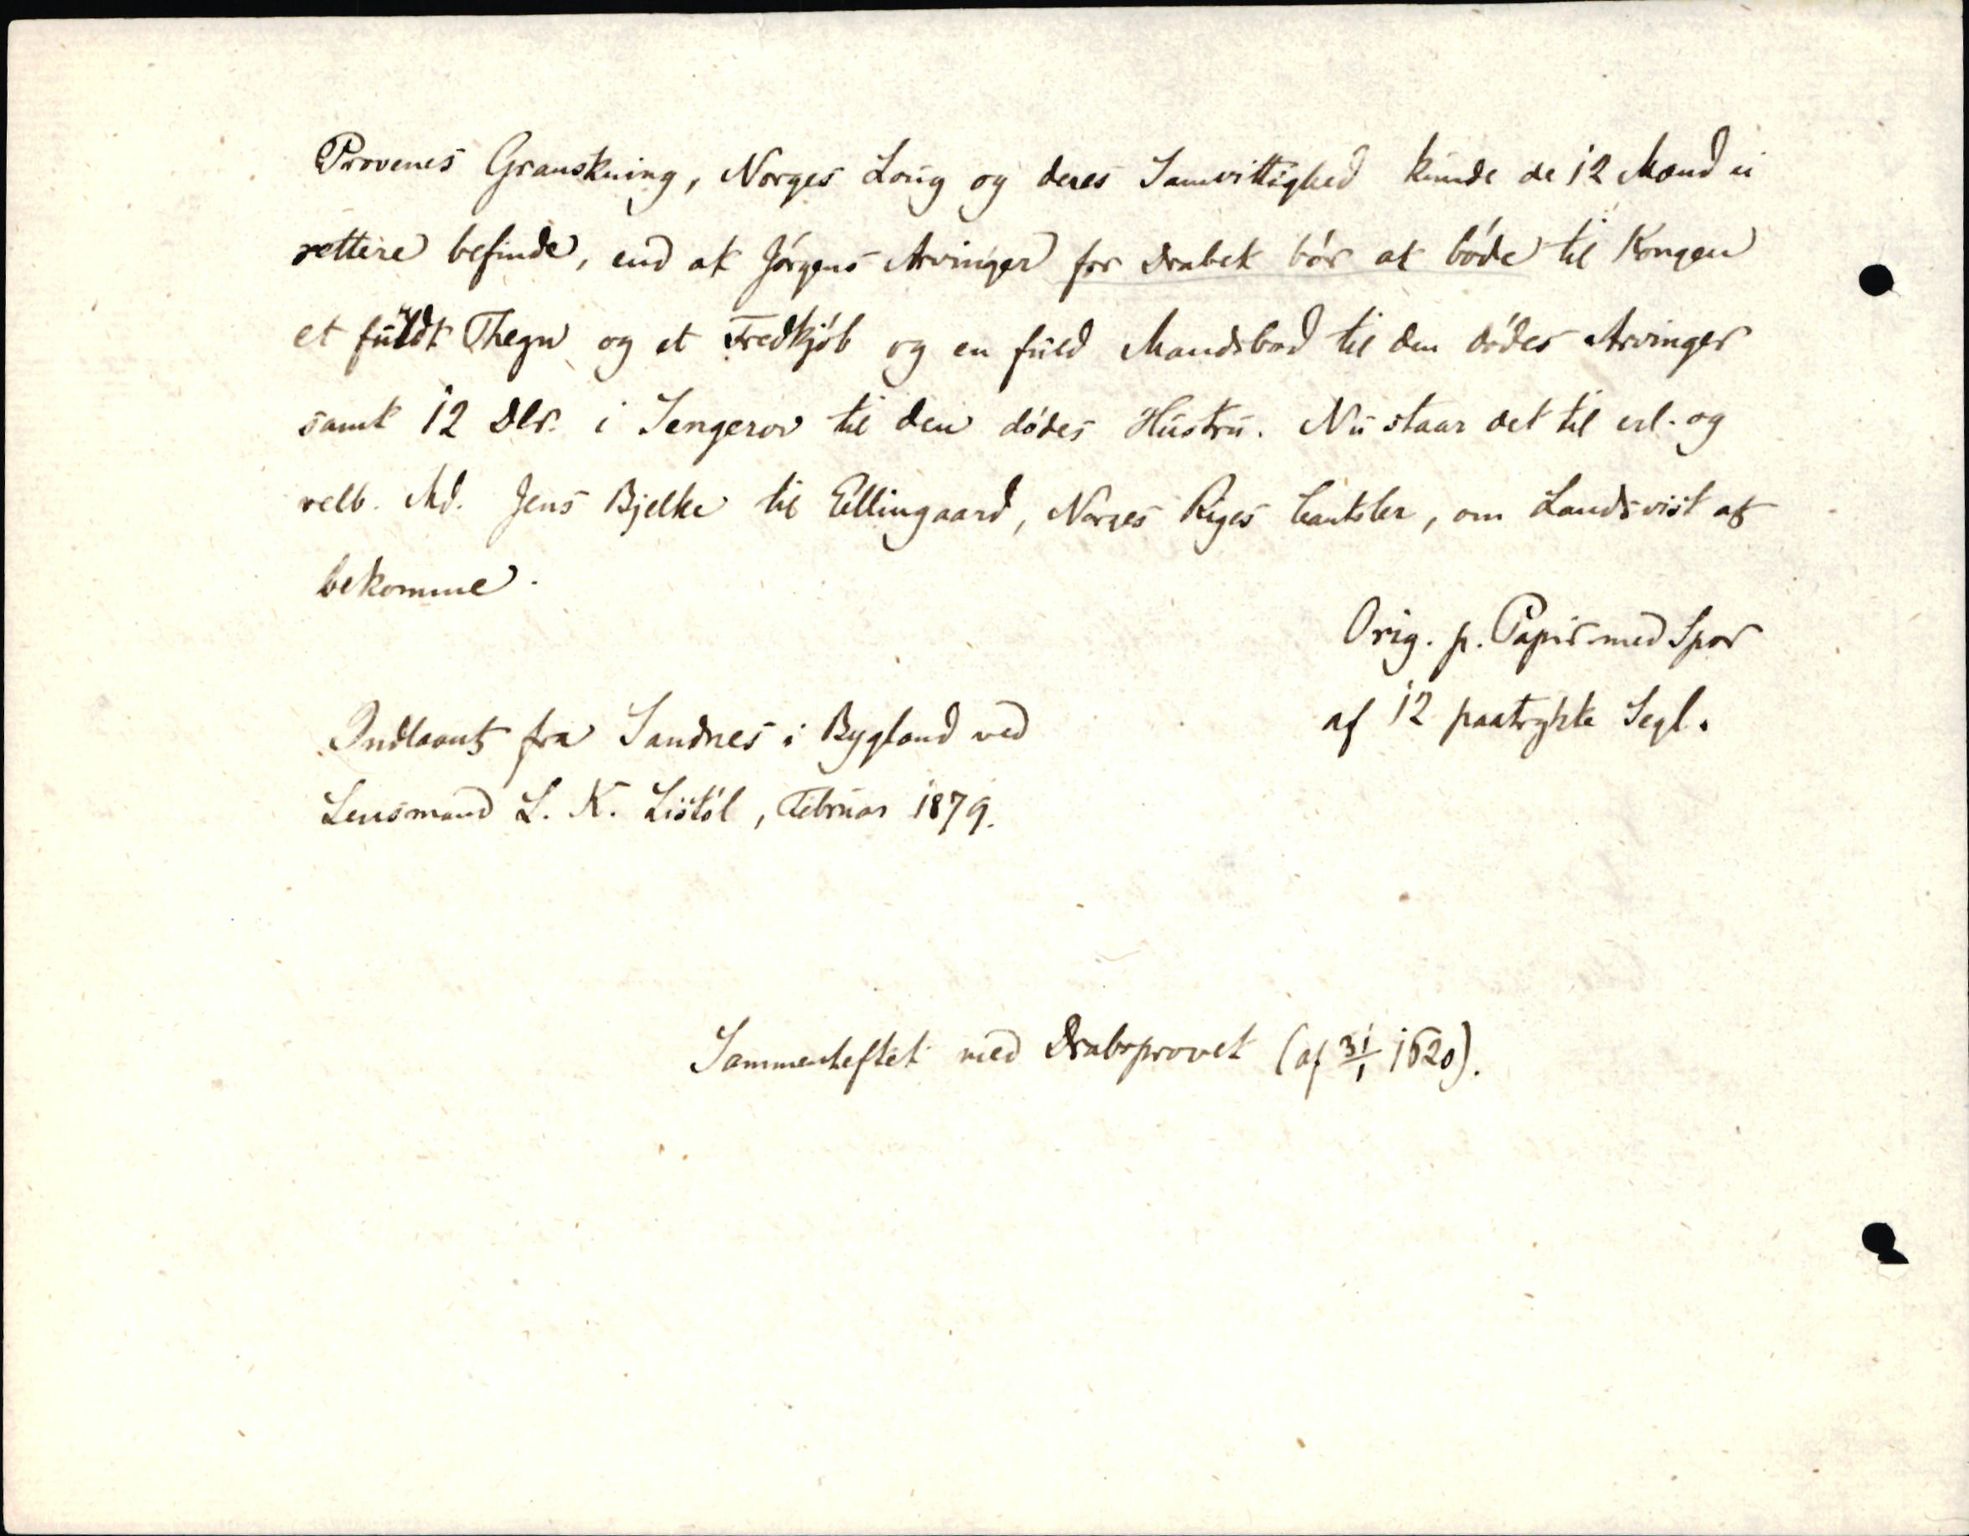 Provenes Granskning, Norges Loug og deres Samvittighed kunde de 12 Mænd ei
rettere befinde, end at Jörgens Arvinger for Drabet bör at böde til Kongen
et fuldt Thegn og et Fredkjöb og en fuld Mandsbod til den dödes Arvinger
samt 12 Dlr. i Sengerov til den dödes Hustru. Nu staar det til erl. og
velb. Md. Jens Bjelke til Ellingaard, Norges Riges Cantsler, om Landsvist at
bekomme.
Orig. p. Papir med Spor
af 12 paatrykte Segl.
Indlaant fra Sandnes i Bygland ved
Lensmand L. K. Liştöl, Februar 1879.
Sammenheftet med Drabsprovet (af 31/1 1620).